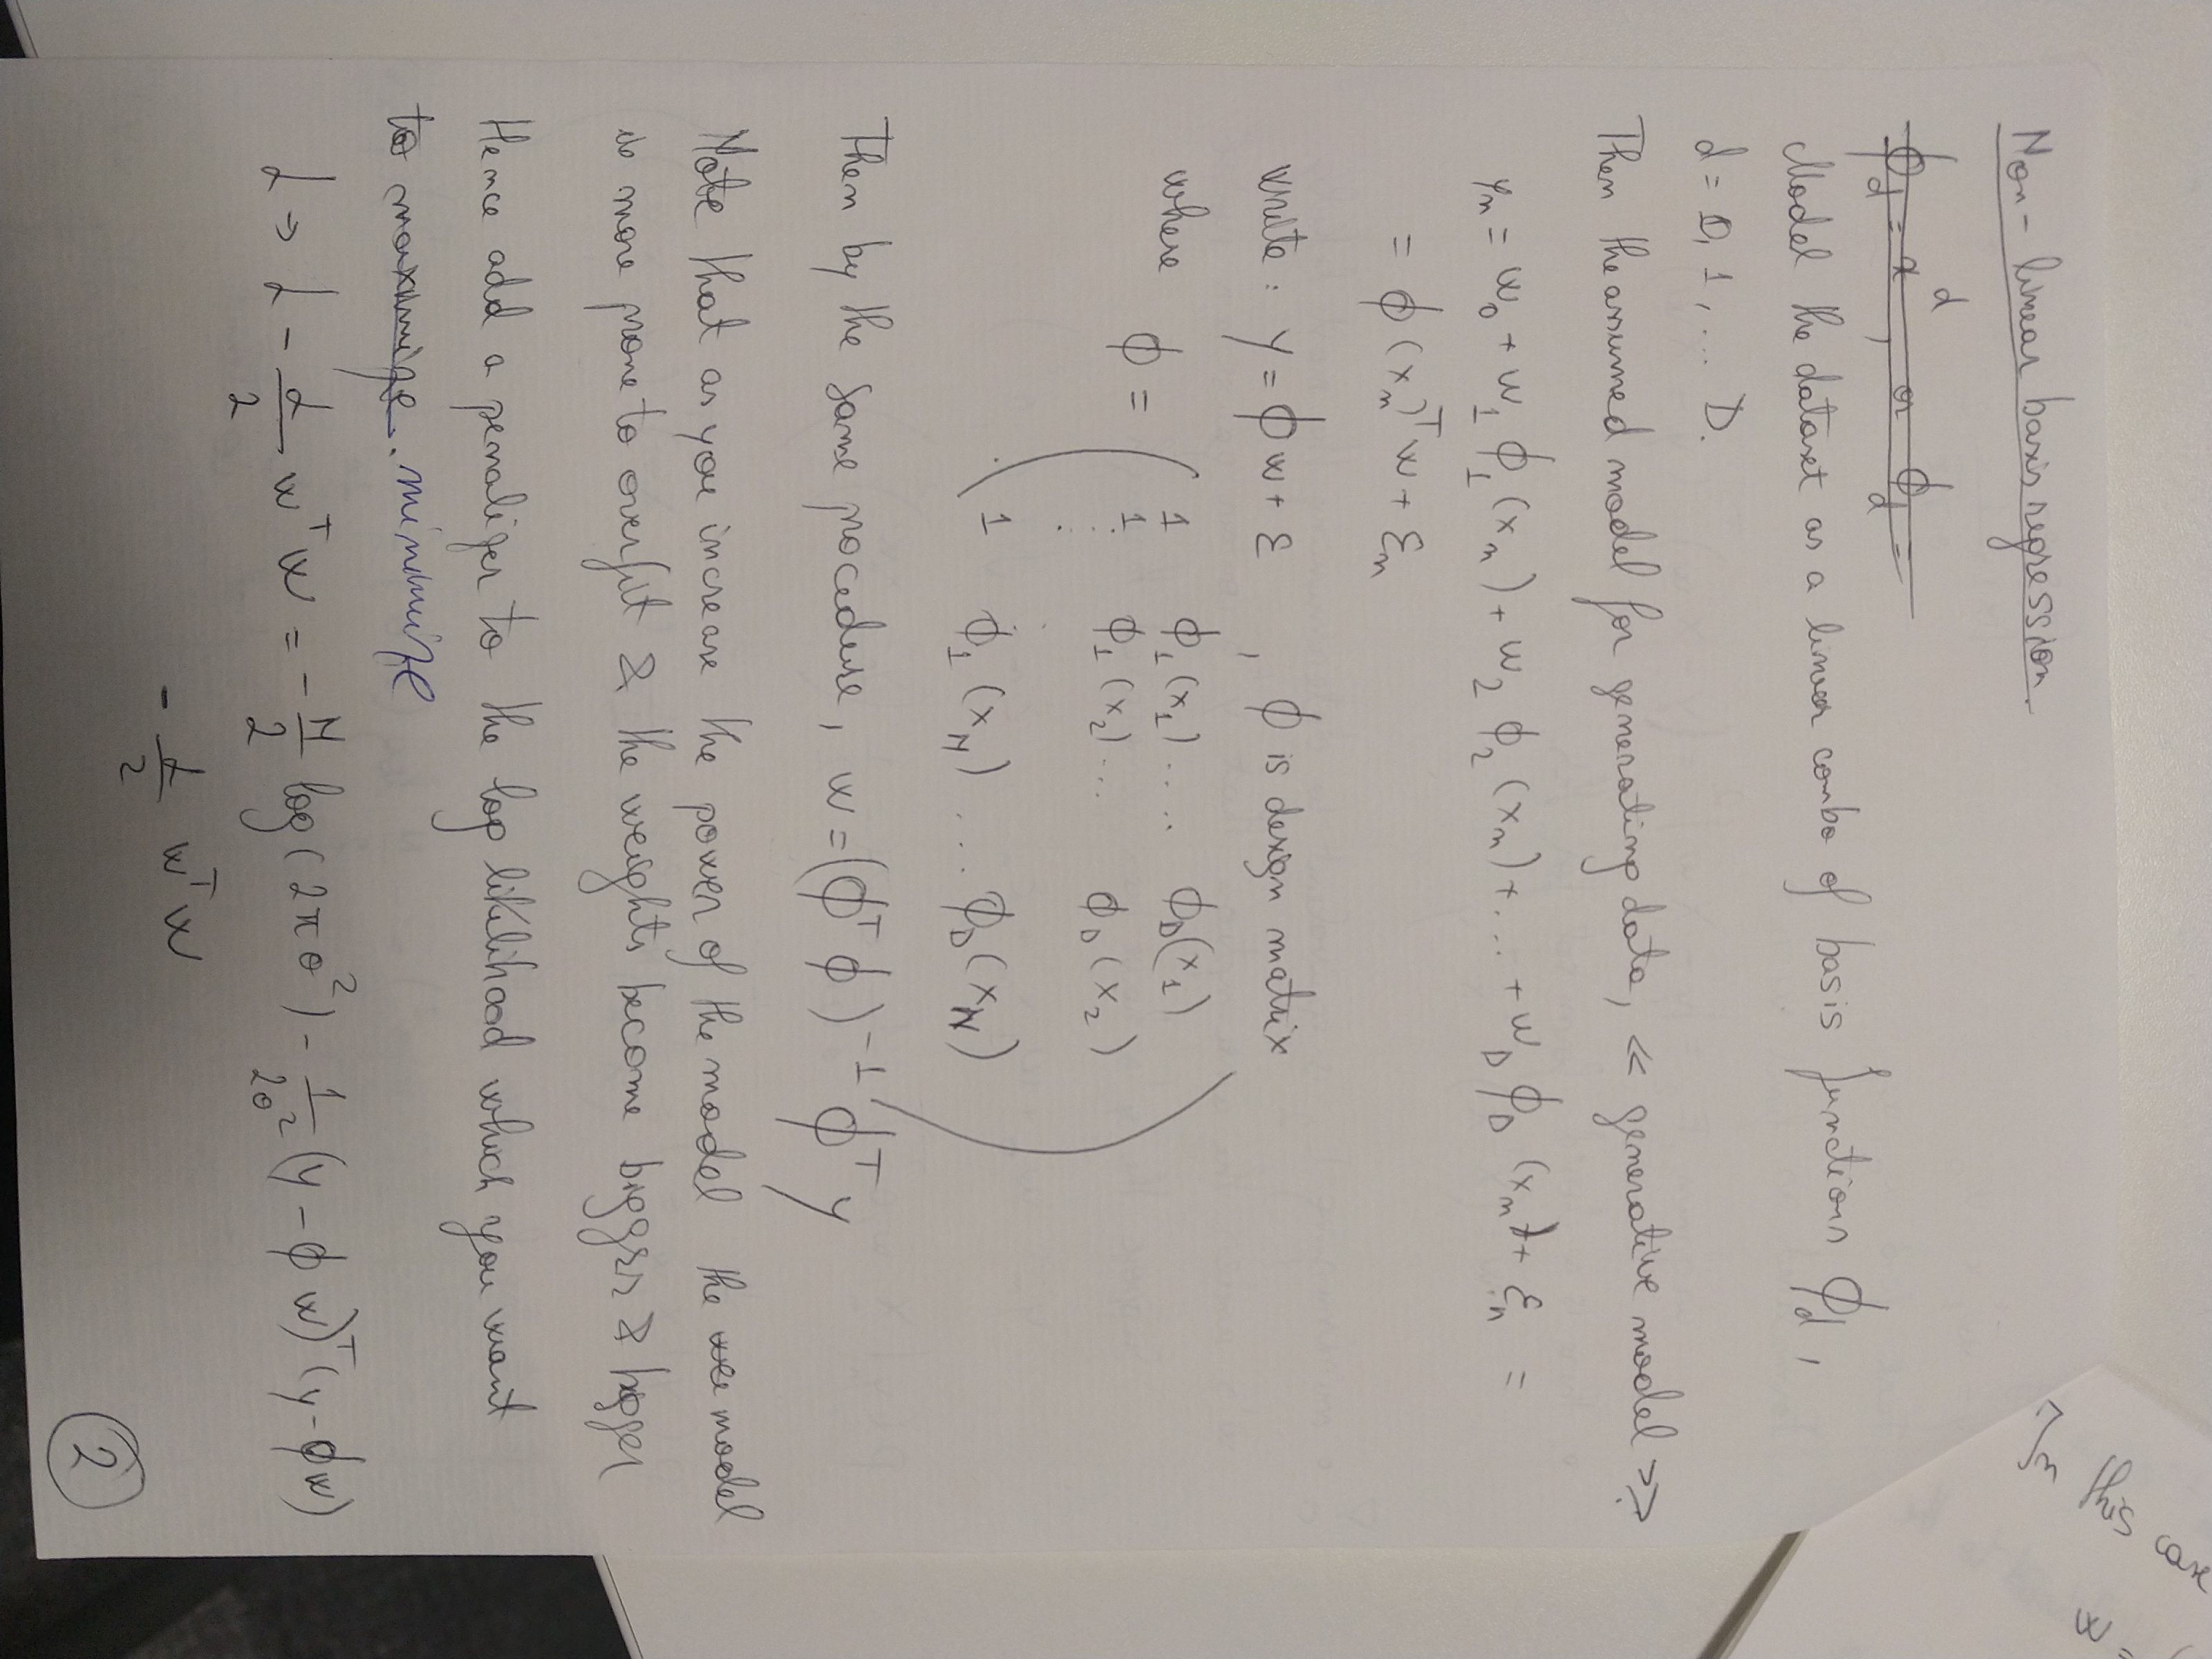 In this case
w =
Non-linear basis regression.
ϕ_d = x^d, or ϕ_d =
Model the dataset as a linear combo of basis functions ϕ_d,
d = 0, 1, ... D.
Then the assumed model for generating data, << generative model >>:
y_n = w_0 + w_1 ϕ_1(x_n) + w_2 ϕ_2(x_n) + ... + w_D ϕ_D(x_n) + ε_n =
= ϕ(x_n)^T w + ε_n
write: y = ϕw + ε , ϕ is design matrix
where ϕ = ( 1 ϕ_1(x_1) .... ϕ_D(x_1)
1 ϕ_1(x_2) ... ϕ_D(x_2)
⋮
1 ϕ_1(x_N) ... ϕ_D(x_N) )
Then by the same procedure, w = (ϕ^T ϕ)^-1 ϕ^T y
Note that as you increase the power of the model the model
is more prone to overfit & the weights become bigger & bigger
Hence add a penalizer to the log likelihood which you want
to maximize. minimize
L → L - α/2 w^T w = - N/2 log(2πσ^2) - 1/2σ^2 (y - ϕw)^T (y - ϕw)
- α/2 w^T w
2